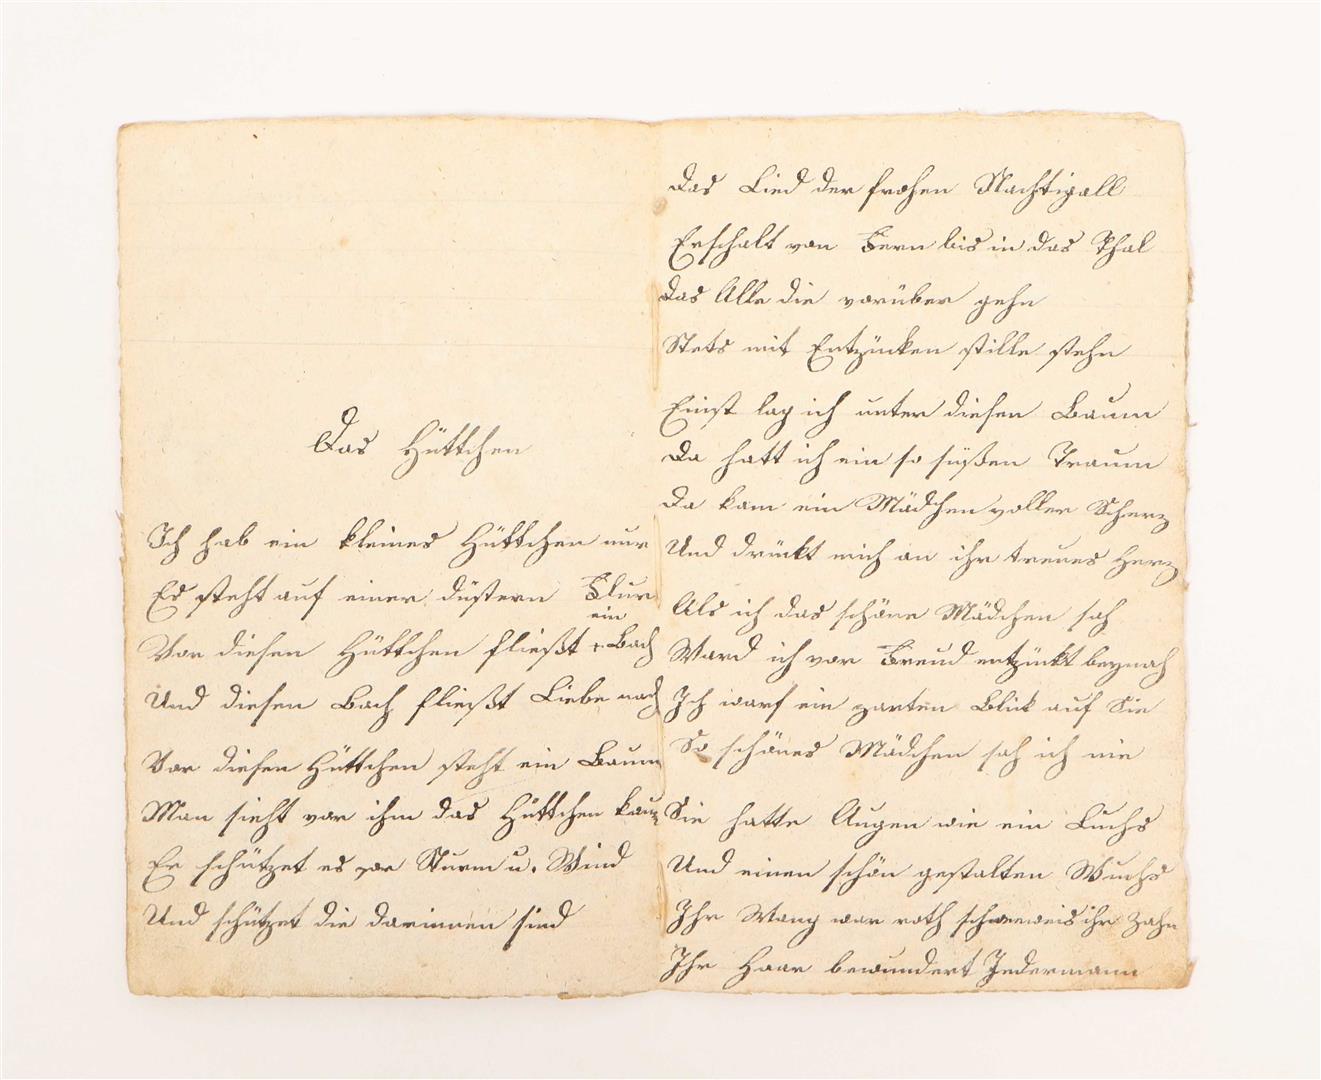 Das Hüttchen
Ich hab ein kleines Hüttchen nur
Es steht auf einer düstern Flur
ein
Vor diesen Hüttchen fließt Bach
Und diesen Bach fließt Liebe nach
Vor diesen Hüttchen steht ein Baum
Man sieht vor ihm das Hüttchen kaum
Er schützet es vor Sturm u. Wind
Und schützet die darinnen sind
Das Lied der frohen Nachtigall
Erschalt von Fern bis in das Thal
Das Alle die vorüber gehn
Stets mit Entzücken stille stehn
Einst lag ich unter diesen Baum
Da hatt ich ein so süßen Traum
Da kam ein Mädchen voller Scherz
Und drückt mich an ihr treues Herz
Als ich das schöne Mädchen sah
Ward ich vor Freud entzückt beynah
Ich warf ein zarten Blick auf Sie
So schönes Mädchen sah ich nie
Sie hatte Augen wie ein Luchs
Und einen schön gestalten Wuchs
Ihr Wang war roth schneeweis ihr Zahn
Ihr Haar bewundert Jedermann